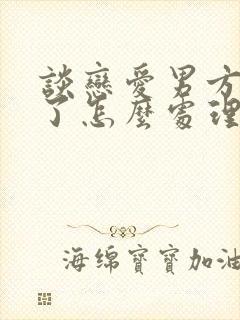 談戀愛男方
了怎麼處理
海绵寶寶加油